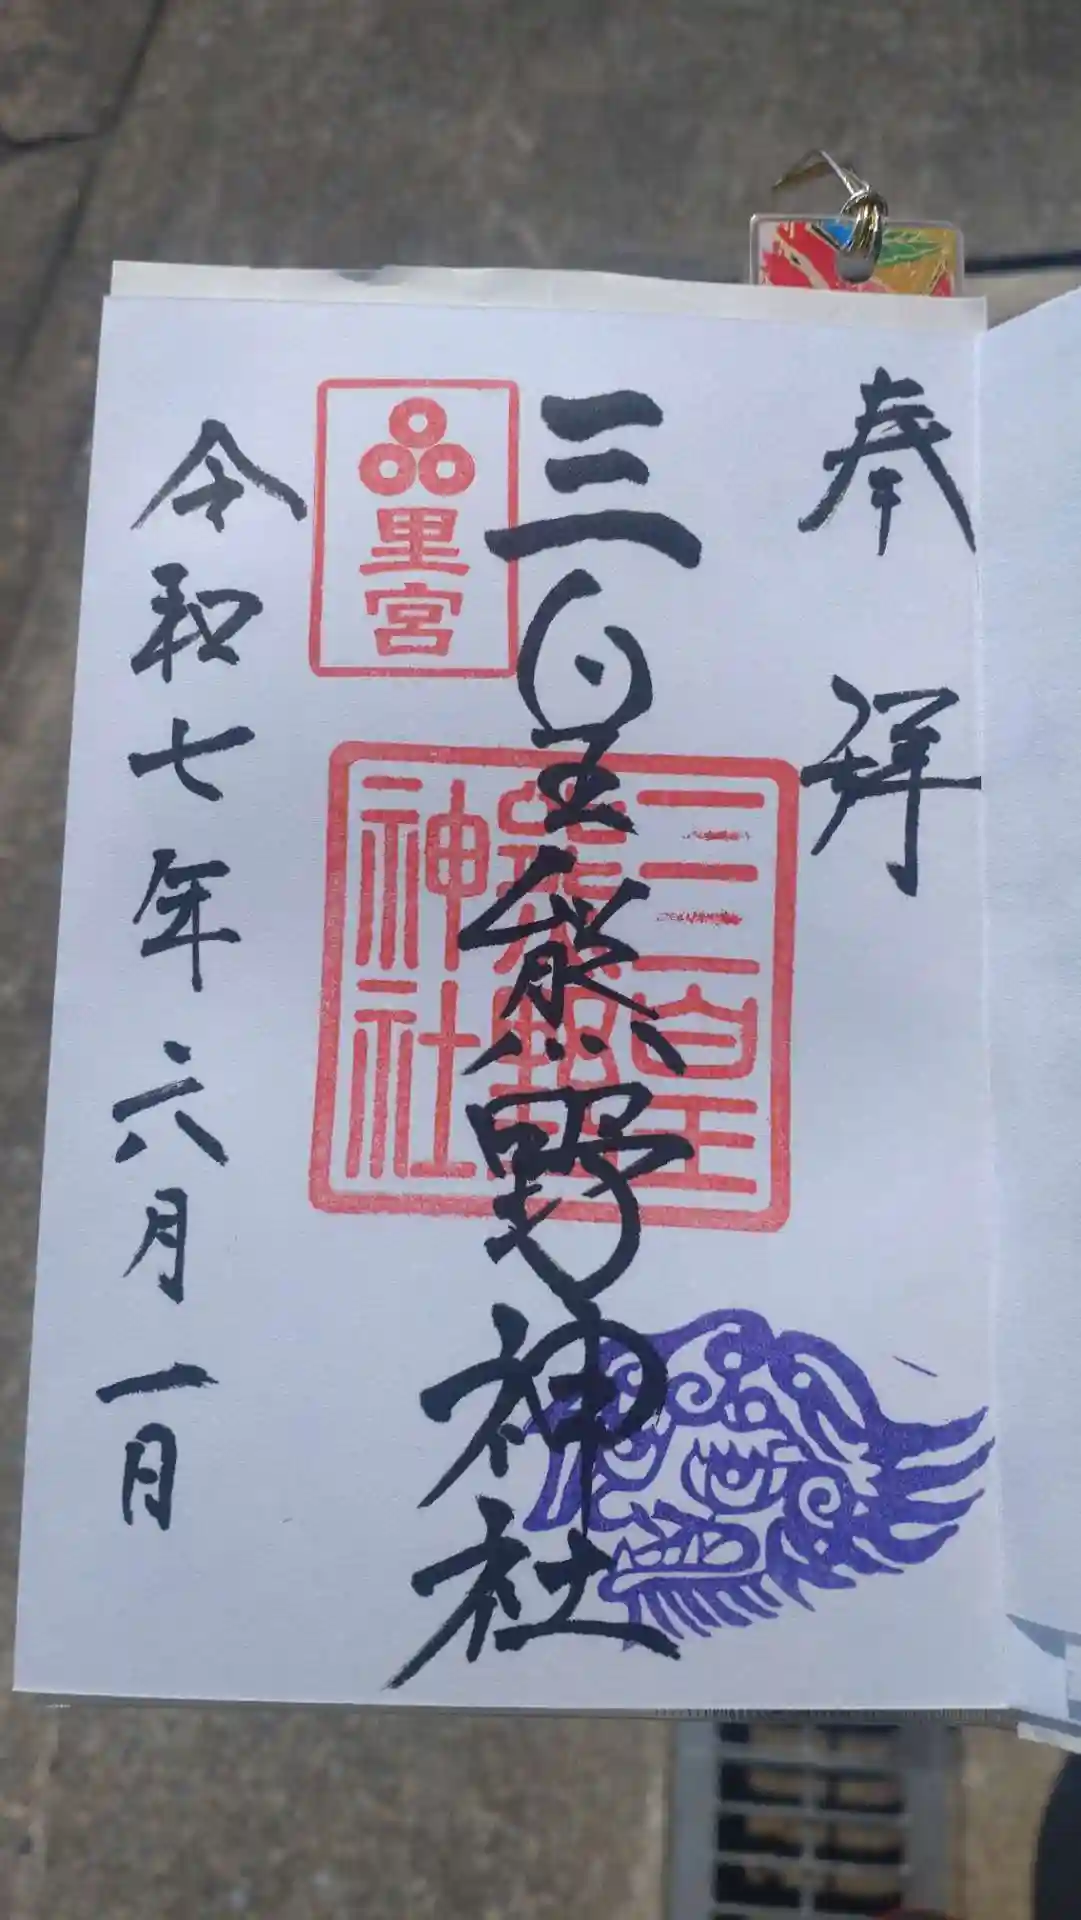 奉拝
三皇熊野神社
三皇熊野神社
里宮
令和七年六月一日